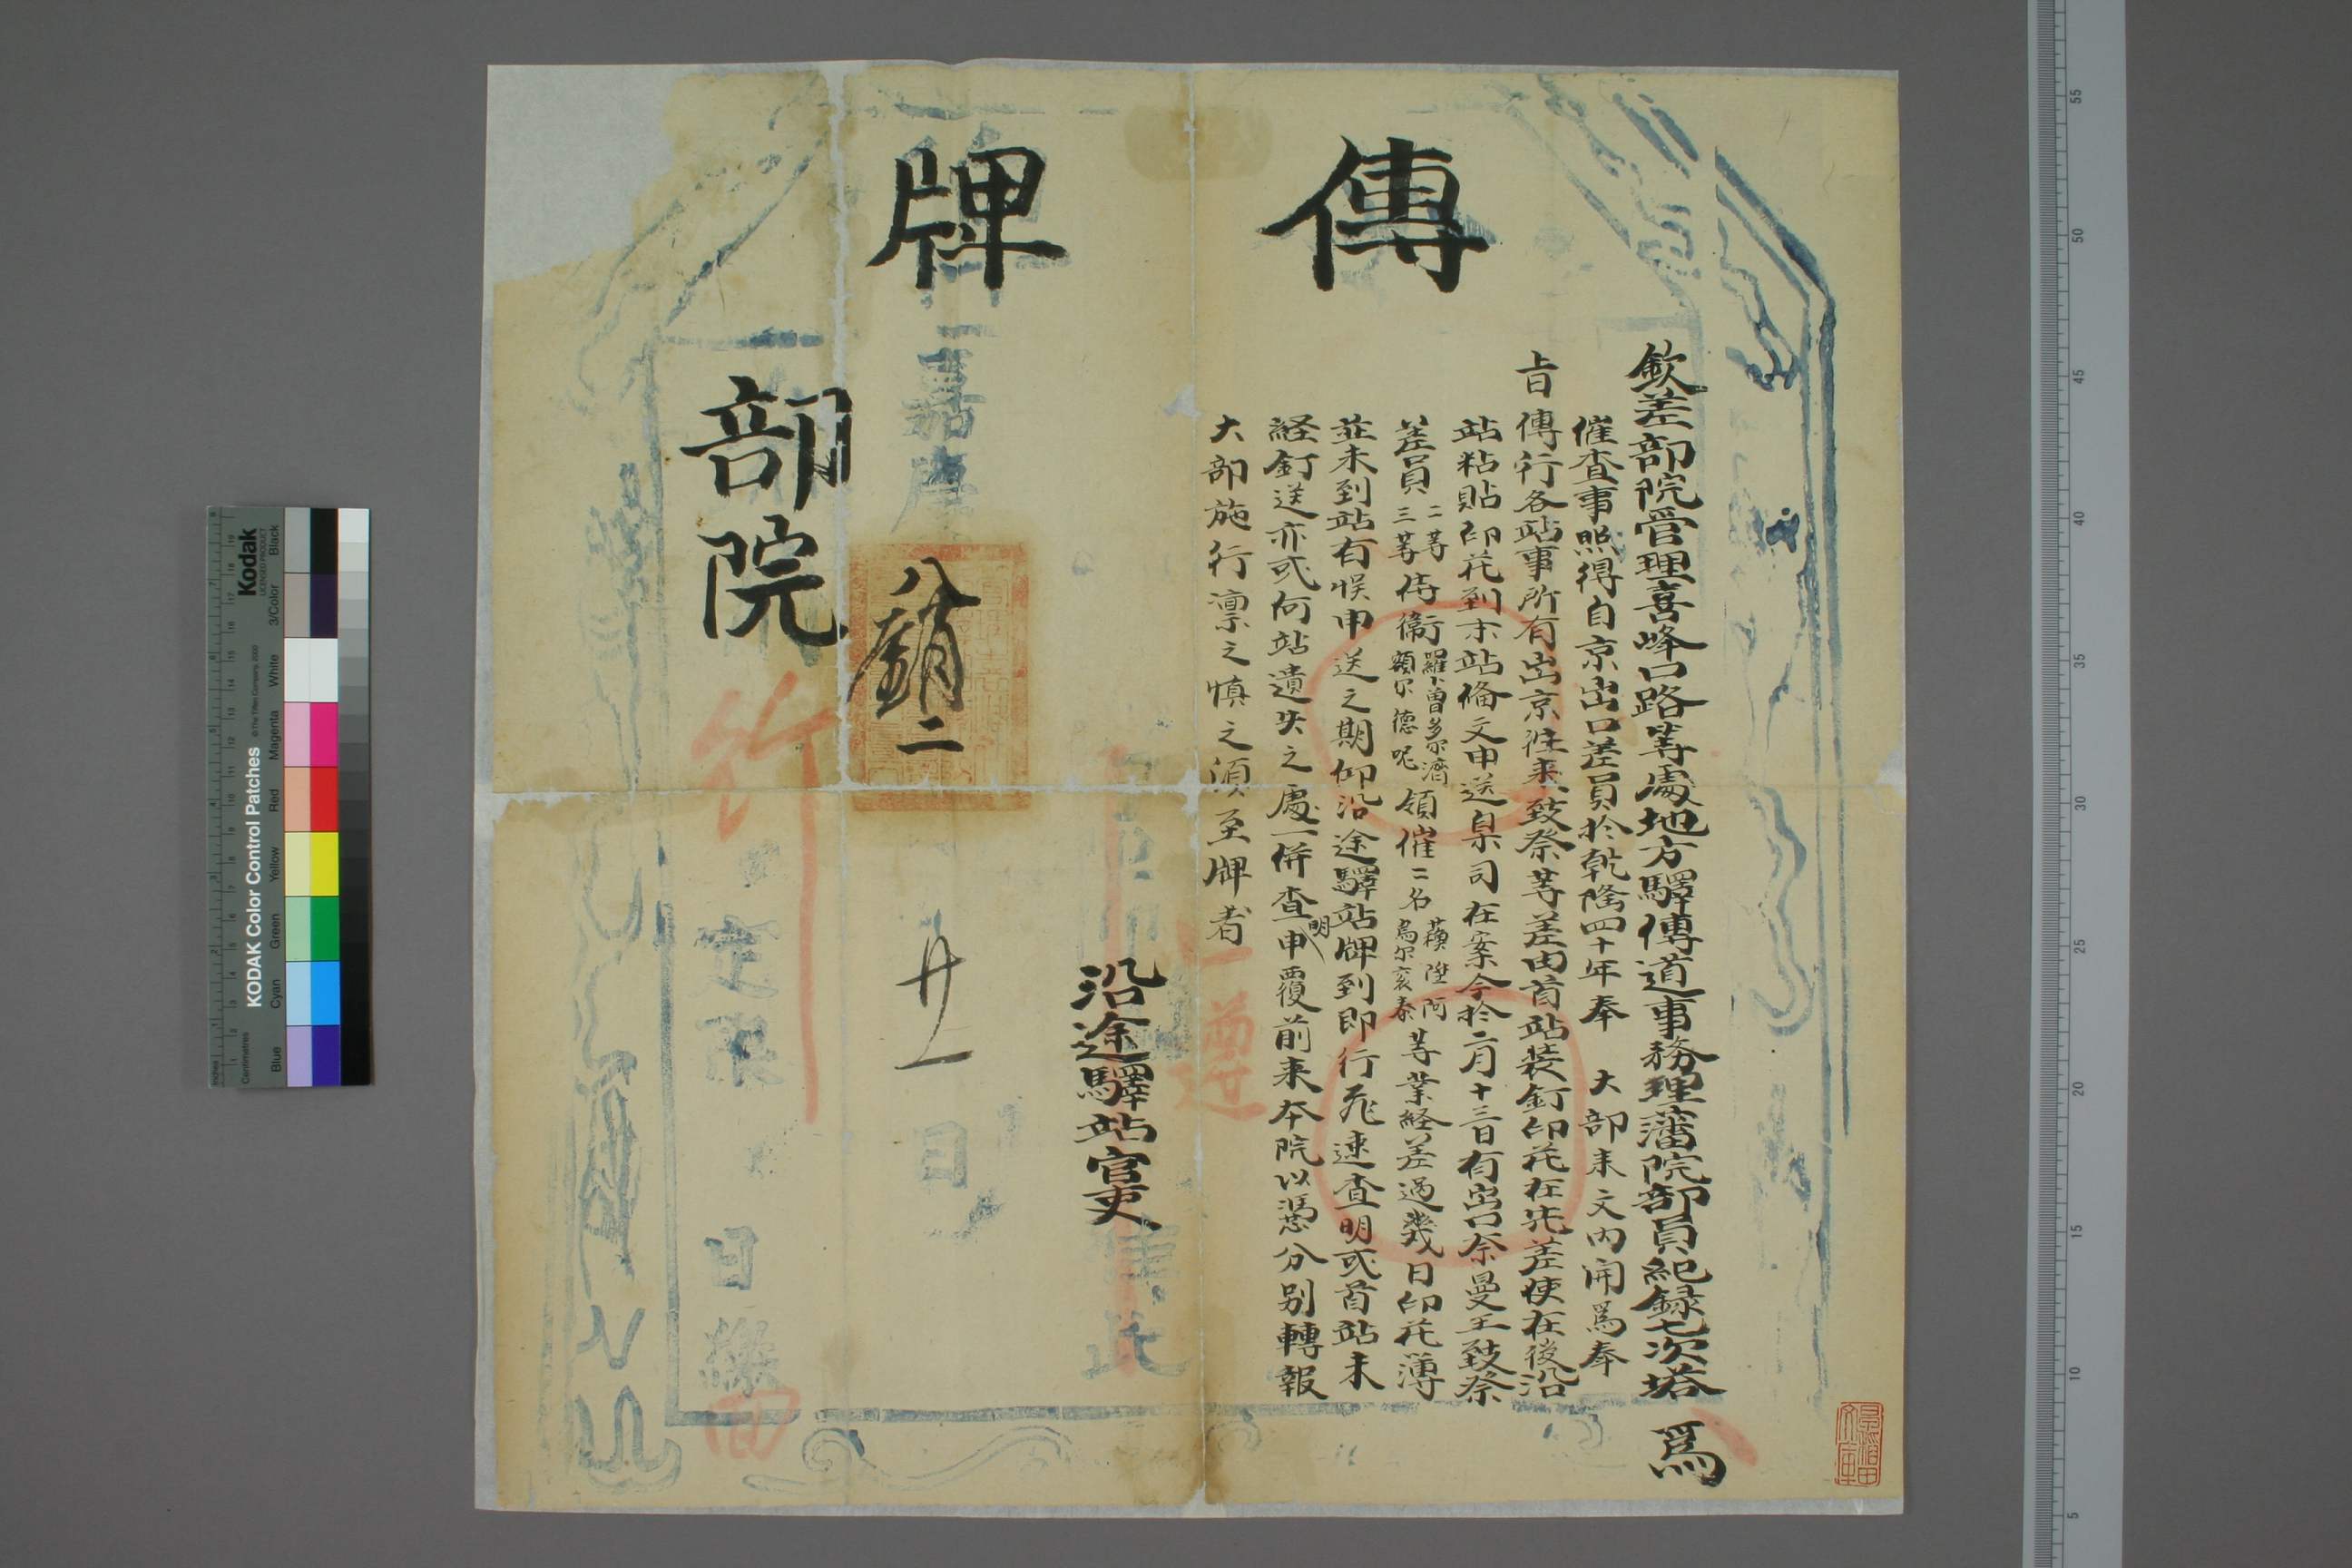 傳牌
欽差部院管理喜峰口路等處地方驛傳道事務理藩院部員紀錄七次塔 爲
催查事照得自京出口差員於乾隆四十年奉 大部來文內開爲奉
旨傳行各站事所有出京往來致祭等差由首站裝釘印花在先差使在後沿
站粘貼印花到末站備文申送臬司在案今於二月十三日有出口奈曼王致祭
差員二等三等侍衛羅卜曽多尔濟額尔德呢領催二名蘓陞阿烏尔袞泰等業経差過幾日印花薄
並未到站有悮申送之期仰沿途驛站牌到即行飛速查明或首站未
経釘送亦或何站遺失之處一併查明申覆前来本院以憑分别轉報
大部施行凛之慎之須至牌者
沿途驛站官吏
遵
嘉慶
八
銷
二
廿一
日
部院
行
定限 日繳